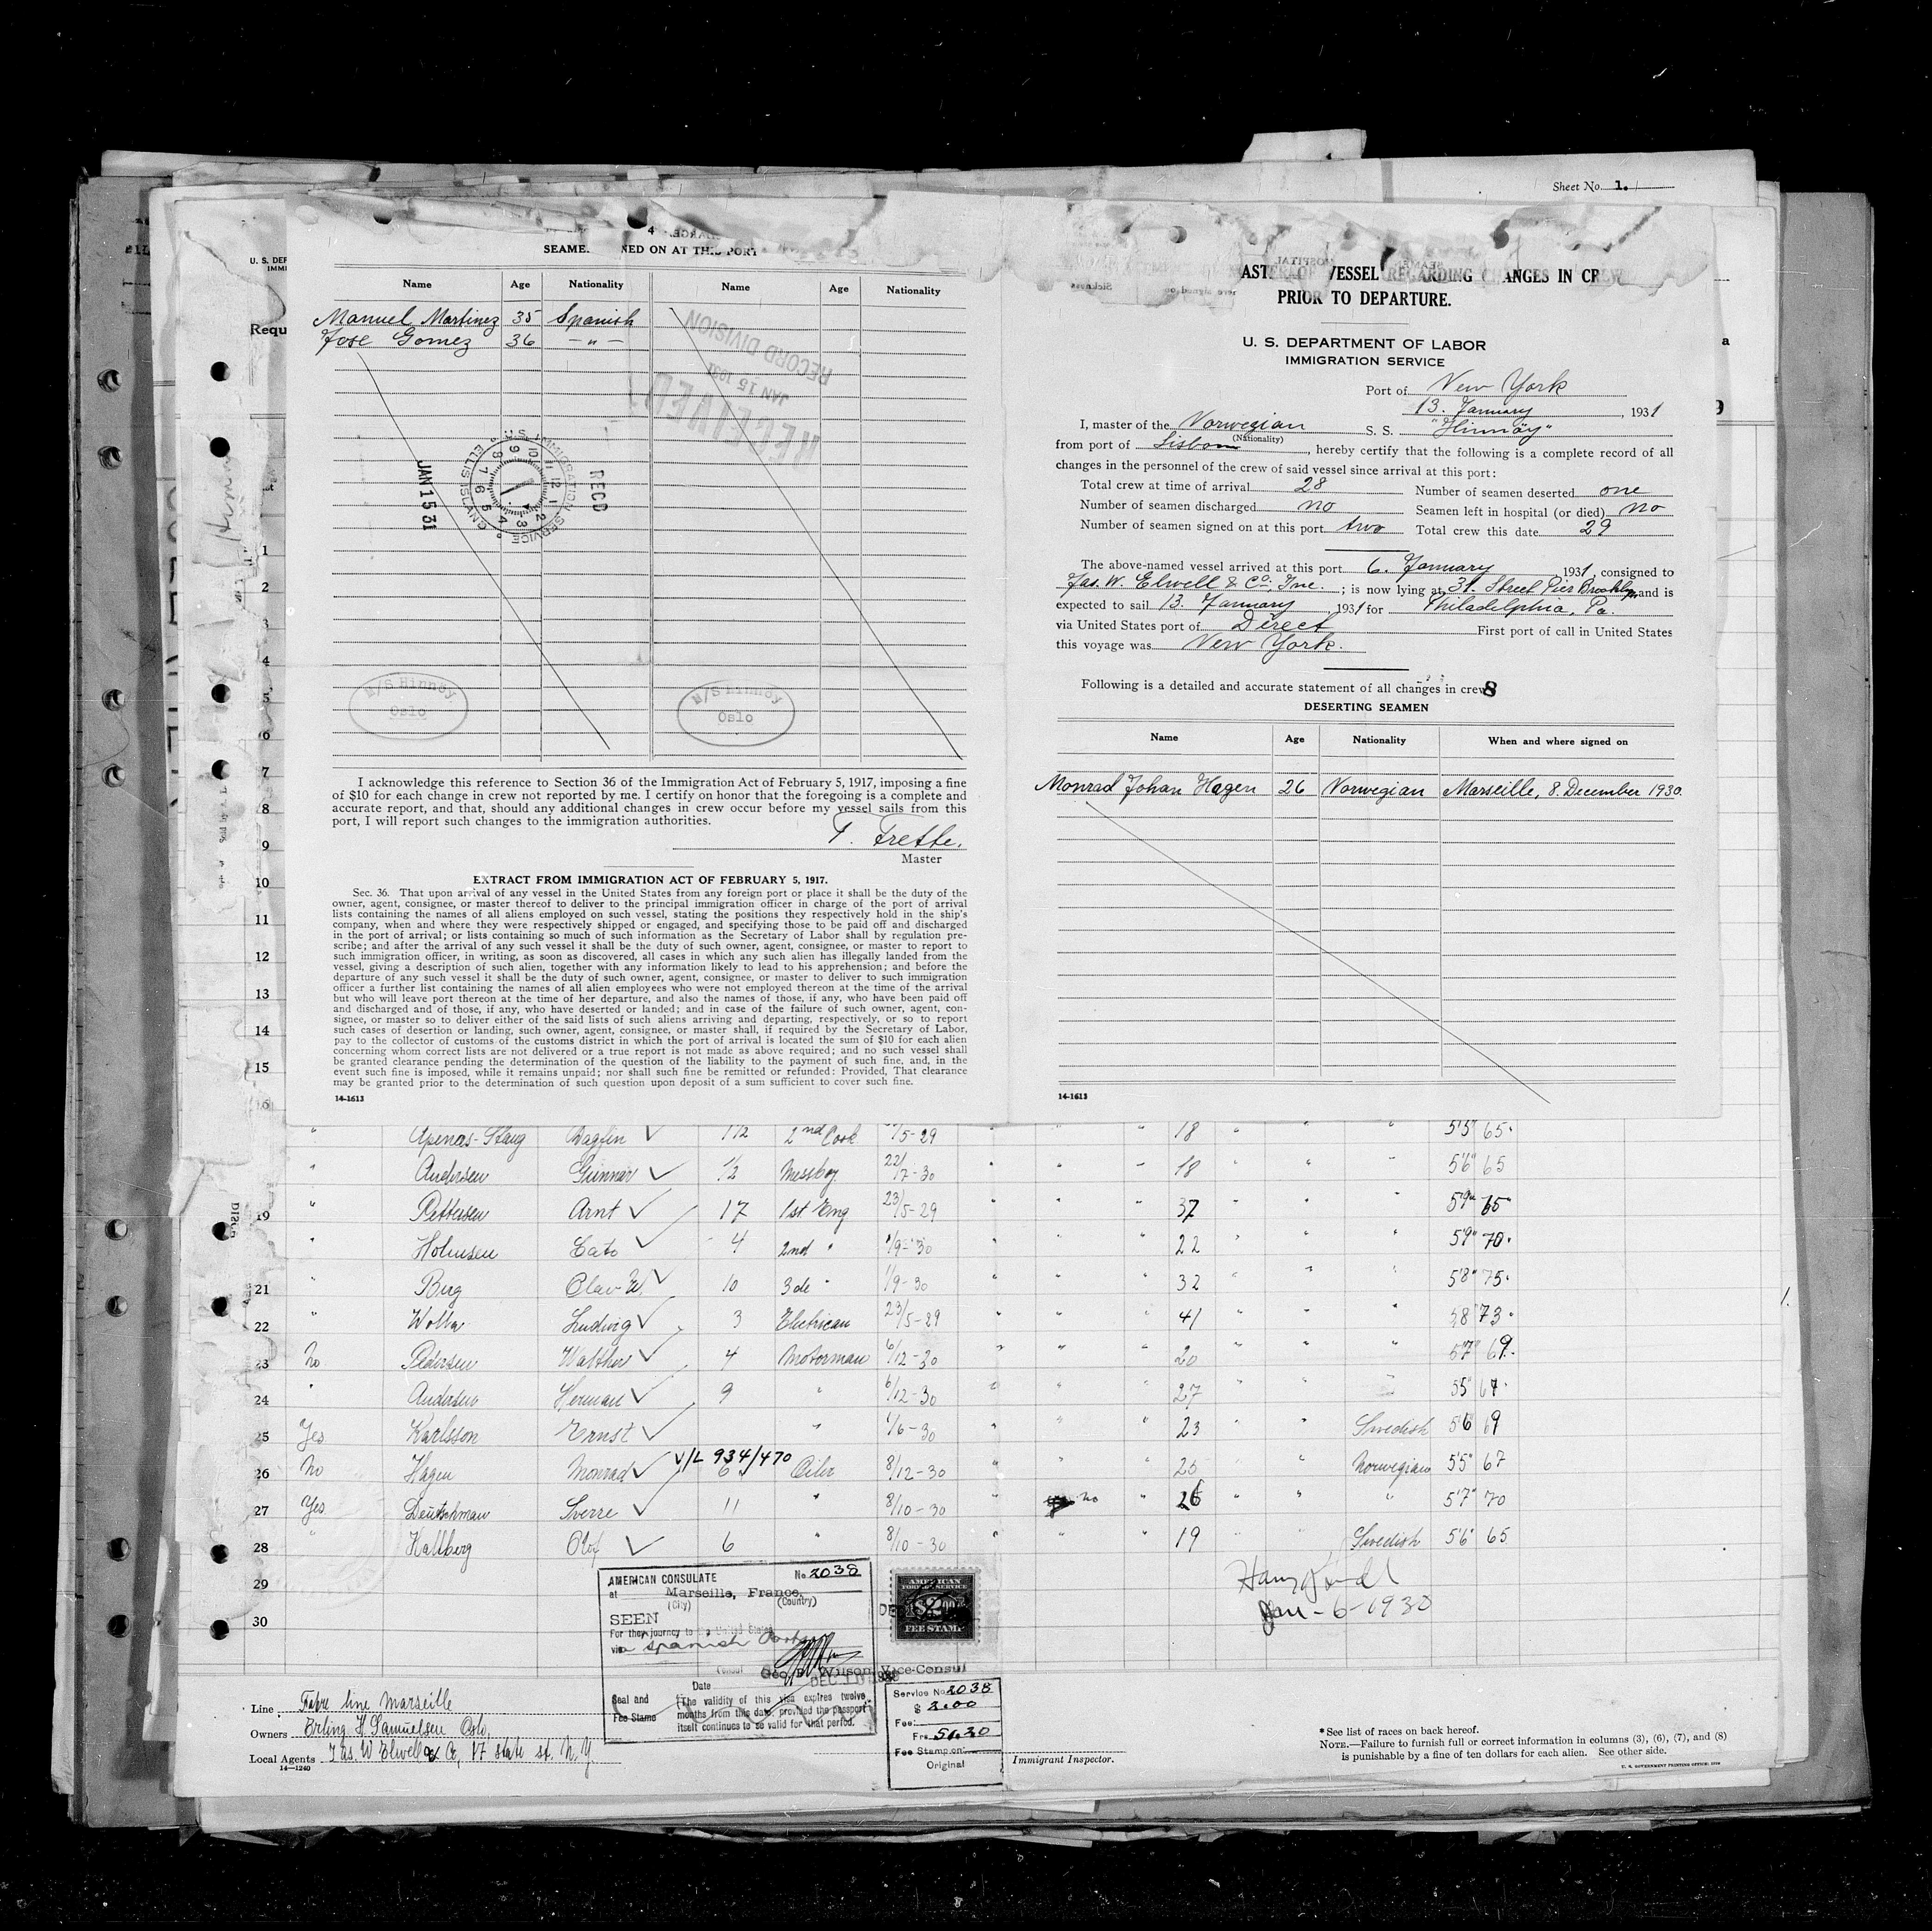 Sheet No. 1.
SEAME. NED ON AT THIS PORT
Name Age Nationality Name Age Nationality
Manuel Martinez 35 Spanish
Jose Gomez 36 — " —
RECEIVED
JAN 15 1931
RECORD DIVISION
JAN 15 31
U.S. IMMIGRATION SERVICE
ELLIS ISLAND
RECD
M/S Hinnöy
Oslo
M/S Hinnöy
Oslo
I acknowledge this reference to Section 36 of the Immigration Act of February 5, 1917, imposing a fine
of $10 for each change in crew not reported by me. I certify on honor that the foregoing is a complete and
accurate report, and that, should any additional changes in crew occur before my vessel sails from this
port, I will report such changes to the immigration authorities.
T. Trette.
Master
EXTRACT FROM IMMIGRATION ACT OF FEBRUARY 5, 1917.
Sec. 36. That upon arrival of any vessel in the United States from any foreign port or place it shall be the duty of the
owner, agent, consignee, or master thereof to deliver to the principal immigration officer in charge of the port of arrival
lists containing the names of all aliens employed on such vessel, stating the positions they respectively hold in the ship's
company, when and where they were respectively shipped or engaged, and specifying those to be paid off and discharged
in the port of arrival; or lists containing so much of such information as the Secretary of Labor shall by regulation pre-
scribe; and after the arrival of any such vessel it shall be the duty of such owner, agent, consignee, or master to report to
such immigration officer, in writing, as soon as discovered, all cases in which any such alien has illegally landed from the
vessel, giving a description of such alien, together with any information likely to lead to his apprehension; and before the
departure of any such vessel it shall be the duty of such owner, agent, consignee, or master to deliver to such immigration
officer a further list containing the names of all alien employees who were not employed thereon at the time of the arrival
but who will leave port thereon at the time of her departure, and also the names of those, if any, who have been paid off
and discharged and of those, if any, who have deserted or landed; and in case of the failure of such owner, agent, con-
signee, or master so to deliver either of the said lists of such aliens arriving and departing, respectively, or so to report
such cases of desertion or landing, such owner, agent, consignee, or master shall, if required by the Secretary of Labor,
pay to the collector of customs of the customs district in which the port of arrival is located the sum of $10 for each alien
concerning whom correct lists are not delivered or a true report is not made as above required; and no such vessel shall
be granted clearance pending the determination of the question of the liability to the payment of such fine, and, in the
event such fine is imposed, while it remains unpaid; nor shall such fine be remitted or refunded: Provided, That clearance
may be granted prior to the determination of such question upon deposit of a sum sufficient to cover such fine.
14-1613
MASTER OF VESSEL REGARDING CHANGES IN CREW
PRIOR TO DEPARTURE.
U. S. DEPARTMENT OF LABOR
IMMIGRATION SERVICE
Port of New York
13. January, 1931
I, master of the Norwegian S. S. "Hinnöy"
(Nationality)
from port of Lisbon, hereby certify that the following is a complete record of all
changes in the personnel of the crew of said vessel since arrival at this port:
Total crew at time of arrival 28 Number of seamen deserted one
Number of seamen discharged no Seamen left in hospital (or died) no
Number of seamen signed on at this port two Total crew this date 29
The above-named vessel arrived at this port 6. January, 1931, consigned to
Jas. W. Elwell & Co., Inc.; is now lying at 31. Street Pier Brooklyn and is
expected to sail 13. January, 1931 for Philadelphia, Pa.
via United States port of Direct First port of call in United States
this voyage was New York.
Following is a detailed and accurate statement of all changes in crew 8
DESERTING SEAMEN
Name Age Nationality When and where signed on
Monrad Johan Hagen 26 Norwegian Marseille, 8. December 1930.
14-1613
" Apenas-Haug Dagfin 1 1/2 2nd Cook /5-29 " " 18 " " " 5'5" 65
" Andersen Gunnar 1/2 Messboy 22/7-30 " " " 18 " " " 5'6" 65
19 " Pettersen Arnt 17 1st Eng 23/5-29 " " " 37 " " " 5'9" 65
" Holmsen Cato 4 2nd " 1/9-30 " " " 22 " " " 5'9" 70
21 " Berg Olav W. 10 3de " 1/9-30 " " " 32 " " " 5'8" 75
22 " Wolla Ludvig 3 Electrican 23/5-29 " " " 41 " " " 5'8" 73
23 No Pedersen Walther 4 Motorman 6/12-30 " " " 20 " " " 5'7" 69
24 " Andersen Herman 9 " 6/12-30 " " " 27 " " " 5'5" 67
25 Yes Karlsson Ernst " 1/6-30 " " " 23 " " Swedish 5'6" 69
V/L 934/470
26 No Hagen Monrad 6 Oiler 8/12-30 " " " 25 " Norwegian 5'5" 67
27 Yes Deutschman Sverre 11 " 8/10-30 " no " 26 " " " 5'7" 70
28 " Hallberg Olof 6 " 8/10-30 " " " 19 " " Swedish 5'6" 65
29
30
Jan-6-1930
AMERICAN CONSULATE No. 2038
at Marseille, France.
(City) (Country)
SEEN
For the journey to the United States
via Spanish Ports
Geo. D. Wilson, Vice-Consul
Date DEC
Seal and Fee Stamp
(The validity of this visa expires twelve
months from this date, provided the passport
itself continues to be valid for that period.
AMERICAN
FOREIGN SERVICE
FEE STAMP
Service No. 2038
$ 2.00
Fee:
Frs. 51.20
Fee Stamp on
Original
Line Fabre line Marseille
Owners Erling H. Samuelsen Oslo,
Local Agents Jas. W Elwell & Co, 17 state st. N.Y.
14—1240
Immigrant Inspector.
*See list of races on back hereof.
NOTE.—Failure to furnish full or correct information in columns (3), (6), (7), and (8)
is punishable by a fine of ten dollars for each alien. See other side.